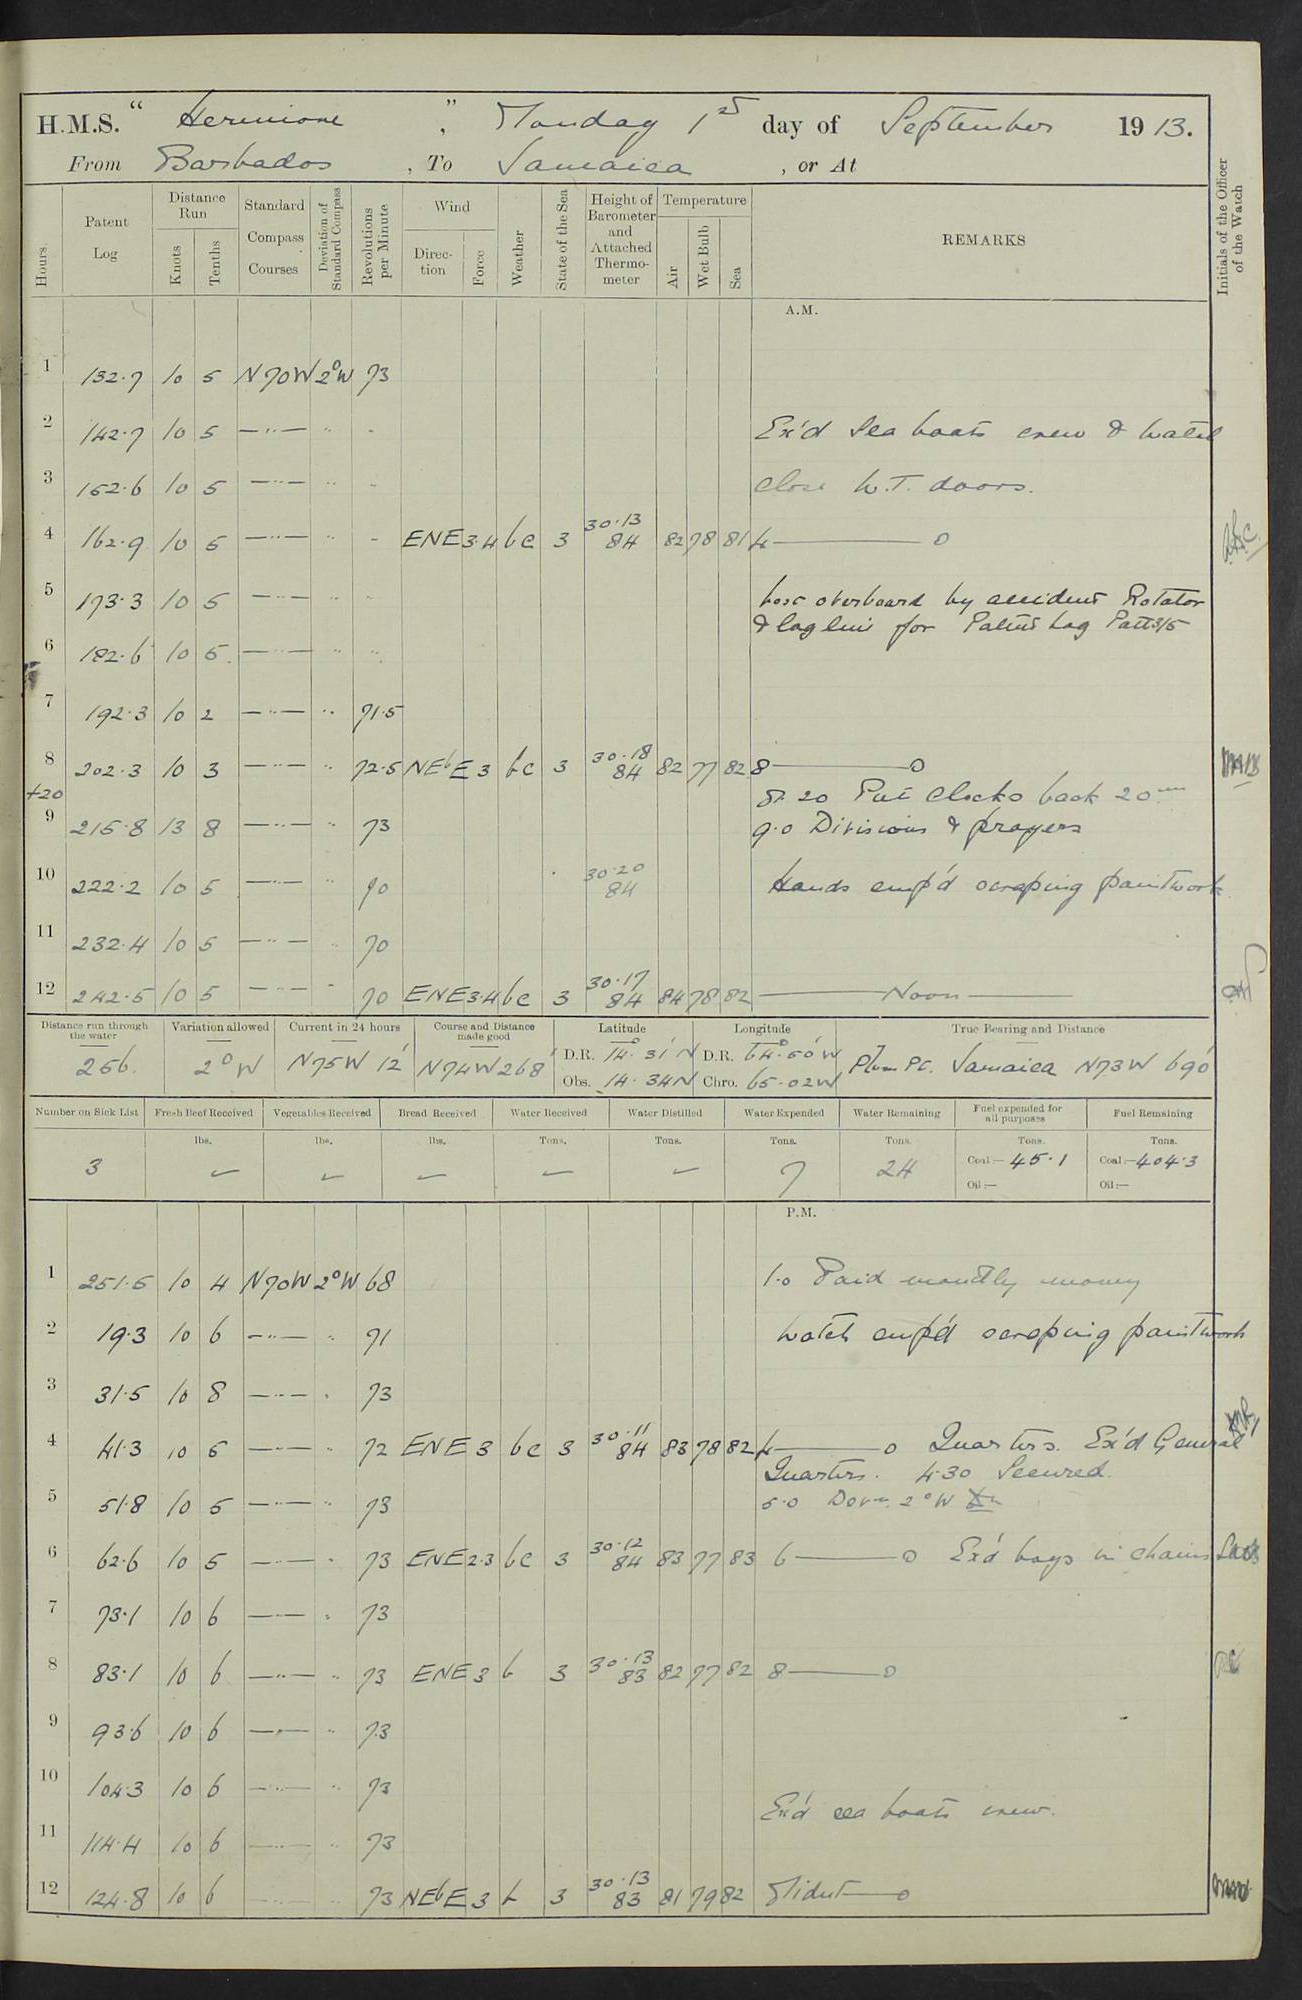 H.M.S. " Hermione ", Monday 1st day of September 1913.
From Barbados , To Jamaica , or At
Hours. Patent Log Distance Run Knots Tenths Standard Compass Courses Deviation of Standard Compass Revolutions per Minute Wind Direction Force Weather State of the Sea Height of Barometer and Attached Thermometer Temperature Air Wet Bulb Sea REMARKS Initials of the Officer of the Watch
A.M.
1 132.7 10 5 N70W 2°W 73
2 142.7 10 5 —"— " " Ex'd Sea boats crew & watch
3 152.6 10 5 —"— " " close W.T. doors.
4 162.9 10 5 —"— " " ENE 3.4 bc 3 30.13 84 82 78 81 4 ——— 0
5 173.3 10 5 —"— " " Lost overboard by accident Rotator
& log line for Patent Log Patt 315
6 182.6 10 5 —"— " "
7 192.3 10 2 —"— " 71.5
8 202.3 10 3 —"— " 72.5 NEbE 3 bc 3 30.18 84 82 77 82 8 ——— 0
+20 8.20 Put clocks back 20 min
9 215.8 13 8 —"— " 73 9.0 Divisions & prayers
10 222.2 10 5 —"— " 70 30.20 84 Hands emp'd scraping paintwork
11 232.4 10 5 —"— " 70
12 242.5 10 5 —"— " 70 ENE 3.4 bc 3 30.17 84 84 78 82 ——— Noon ———
Distance run through the water Variation allowed Current in 24 hours Course and Distance made good Latitude Longitude True Bearing and Distance
256. 2°W N75W 12' N74W 268' D.R. 14° 31' N D.R. 64° 50' W Plum Pt. Jamaica N73W 690'
Obs. 14.34N Chro. 65.02W
Number on Sick List Fresh Beef Received Vegetables Received Bread Received Water Received Water Distilled Water Expended Water Remaining Fuel expended for all purposes Fuel Remaining
lbs. lbs. lbs. Tons. Tons. Tons. Tons. Tons. Tons.
3 — — — — — 7 24 Coal:— 45.1 Coal:— 404.3
Oil:— Oil:—
P.M.
1 251.5 10 4 N70W 2°W 68 1.0 Paid monthly money
2 19.3 10 6 —"— " 71 Watch emp'd scraping paintwork
3 31.5 10 8 —"— " 73
4 41.3 10 5 —"— " 72 ENE 3 bc 3 30.11 84 83 78 82 4 ——— 0 Quarters. Ex'd General
Quarters. 4.30 Secured.
5 51.8 10 5 —"— " 73 5.0 Devn. 2°W
6 62.6 10 5 —"— " 73 ENE 2.3 bc 3 30.12 84 83 77 83 6 ——— 0 Ex'd boys in chains
7 73.1 10 6 —"— " 73
8 83.1 10 6 —"— " 73 ENE 3 b 3 30.13 83 82 77 82 8 ——— 0
9 93.6 10 6 —"— " 73
10 104.3 10 6 —"— " 73
Ex'd sea boats crew.
11 114.4 10 6 —"— " 73
12 124.8 10 6 —"— " 73 NEbE 3 b 3 30.13 83 81 79 82 Midnt ——— 0